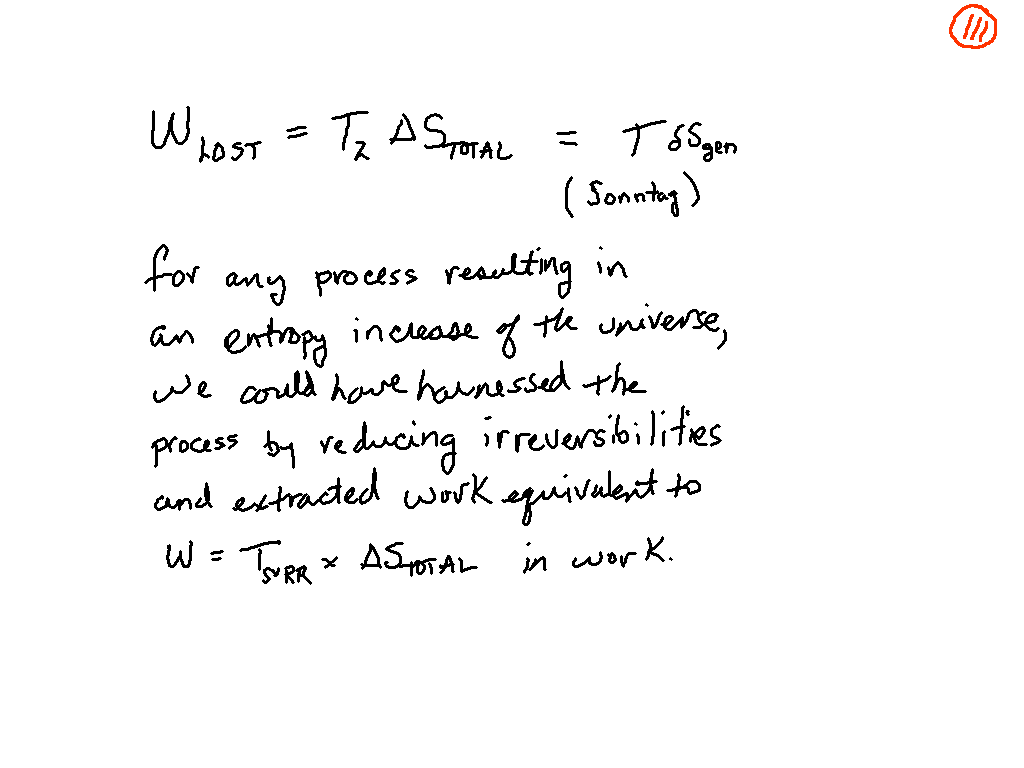 111
W LOST = T2 ΔS TOTAL = T δSgen
(Sonntag)
for any process resulting in
an entropy increase of the universe,
we could have harnessed the
process by reducing irreversibilities
and extracted work equivalent to
W = T SURR × ΔS TOTAL in work.